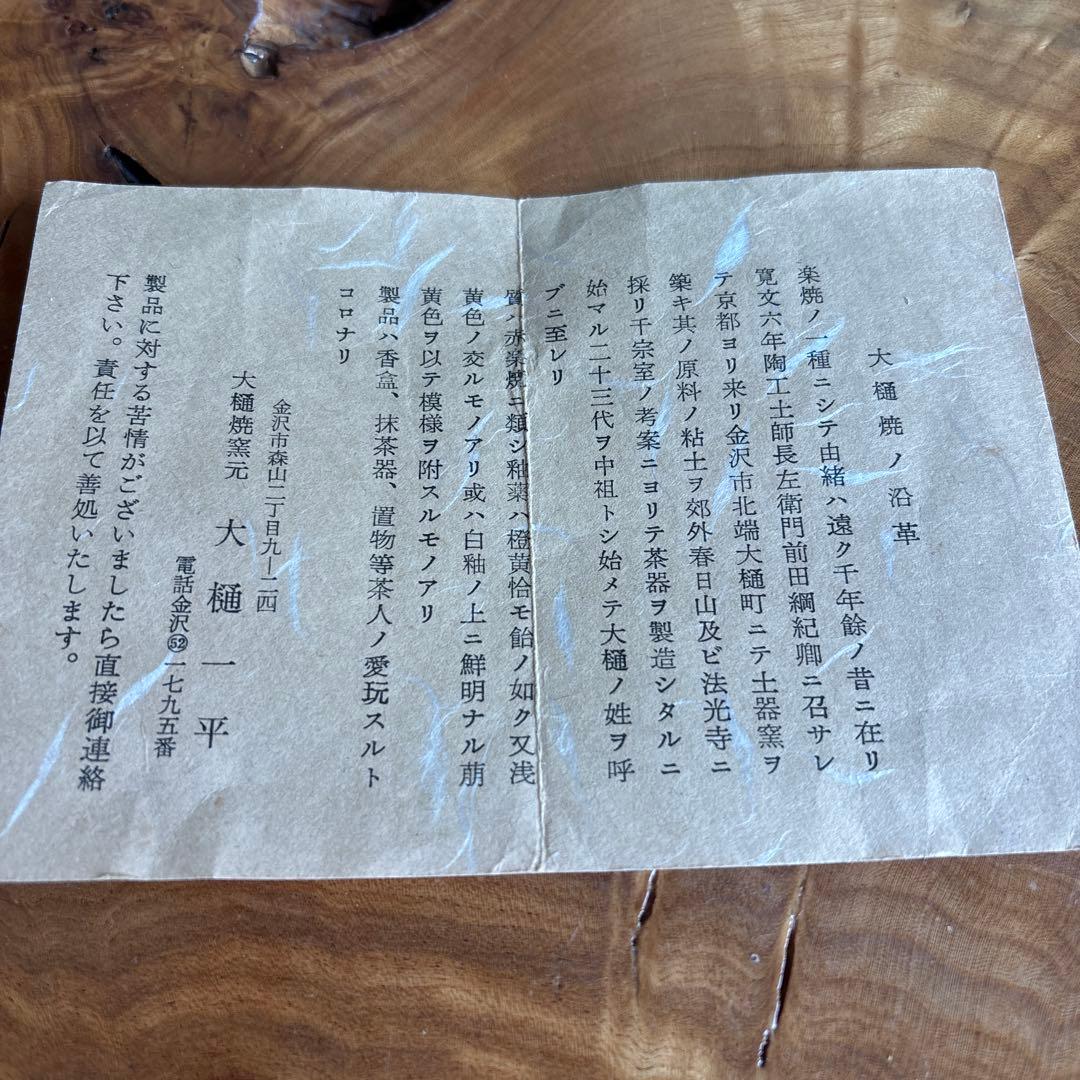 大樋焼ノ沿革
楽焼ノ一種ニシテ由緒ハ遠ク千年餘ノ昔ニ在リ
寛文六年陶工土師長左衛門前田綱紀卿ニ召サレ
テ京都ヨリ来リ金沢市北端大樋町ニテ土器窯ヲ
築キ其ノ原料ノ粘土ヲ郊外春日山及ビ法光寺ニ
採リ千宗室ノ考案ニヨリテ茶器ヲ製造シタルニ
始マル二十三代ヲ中祖トシ始メテ大樋ノ姓ヲ呼
ブニ至レリ
質ハ赤楽焼ニ類シ釉薬ハ橙黄恰モ飴ノ如ク又浅
黄色ノ交ルモノアリ或ハ白釉ノ上ニ鮮明ナル萠
黄色ヲ以テ模様ヲ附スルモノアリ
製品ハ香盒、抹茶器、置物等茶人ノ愛玩スルト
コロナリ
金沢市森山二丁目九ー二四
大樋焼窯元 大樋一平
電話金沢㊾一七九五番
製品に対する苦情がございましたら直接御連絡
下さい。責任を以て善処いたします。